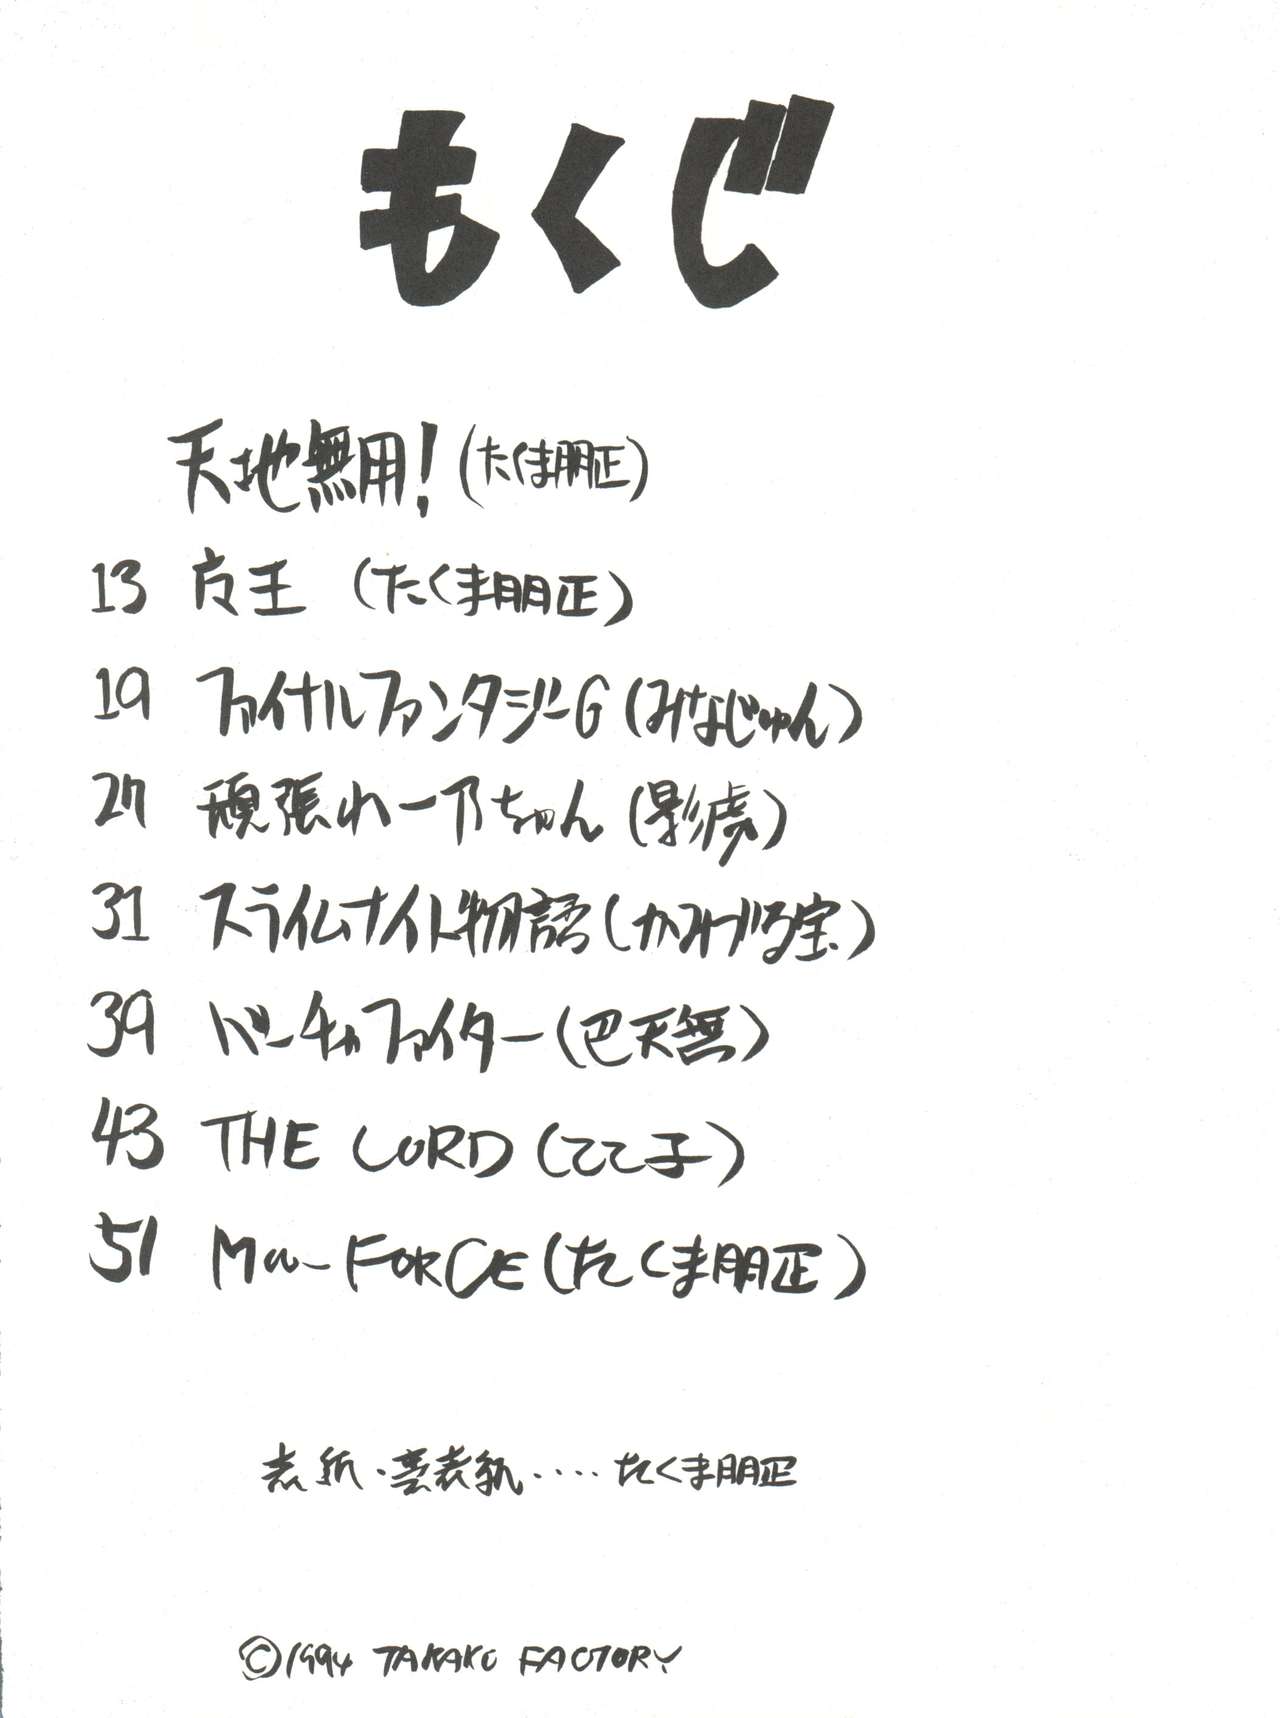 もくじ
天地無用!(たくま朋正)
13 女王 (たくま朋正)
19 ファイナルファンタジーG(みなじゅん)
27 頑張れ一乃ちゃん(影虎)
31 スライムナイト物語(かみづる宝)
39 バーチャファイター(巴天無)
43 THE LORD(てて て子)
51 FORCE(たくま朋正)
表紙・裏表紙....たくま朋正
©1994 TAKAKO FACTORY